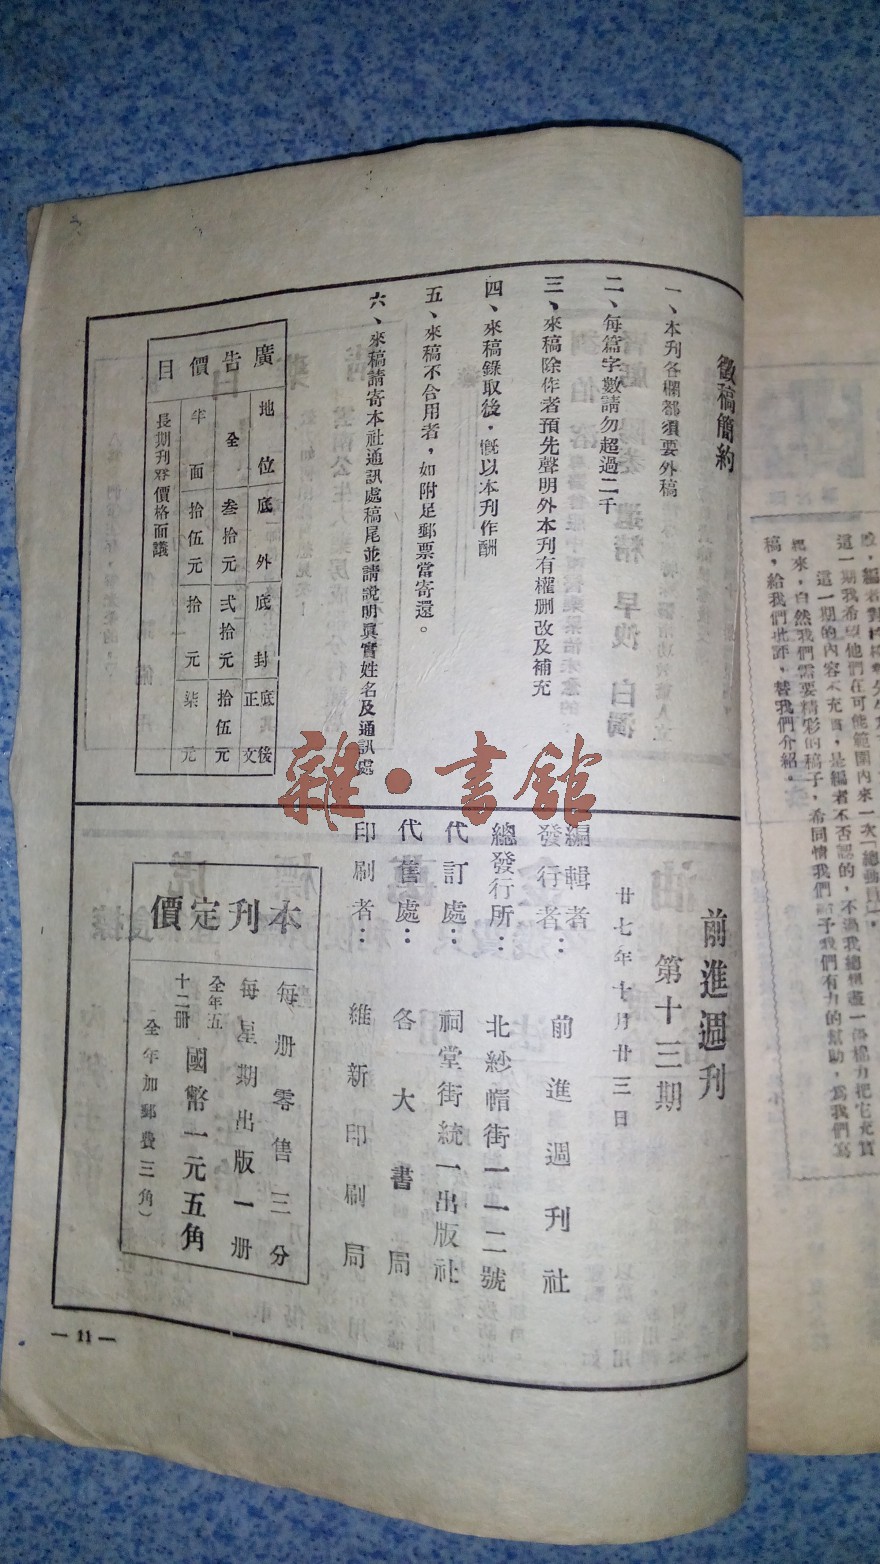 徵稿簡約
一、本刊各欄都須要外稿
二、每篇字數請勿超過二千
三、來稿除作者預先聲明外本刊有權刪改及補充
四、來稿錄取後，慨以本刊作酬
五、來稿不合用者，如附足郵票當寄還。
六、來稿請寄本社通訊處稿尾並請說明眞實姓名及通訊處
廣告價目
地位 底外 底封 底其後正文
全 叁拾元 弍拾元 拾伍元
半面 拾伍元 拾元 柒元
長期刊登價格面議
雜·書館
前進週刊
第十三期
廿七年十月廿三日
編輯者：
發行者：
前進週刊社
總發行所：北紗帽街一一二號
代訂處：祠堂街統一出版社
代售處：各大書局
印刷者：維新印刷局
本刊定價
每册零售三分
每星期出版一册
全年五十二册
國幣一元五角
（全年加郵費三角）
— 11 —
這一期我希望他們在可能範圍內來一次「總動員」。
這一期的內容不充實，是編者不否認的，不過我總想盡一份權力把它充實
起來，自然我們需要精彩的稿子，希同情我們給予我們有力的幫助，爲我們寫
稿，給我們批評，替我們介紹。